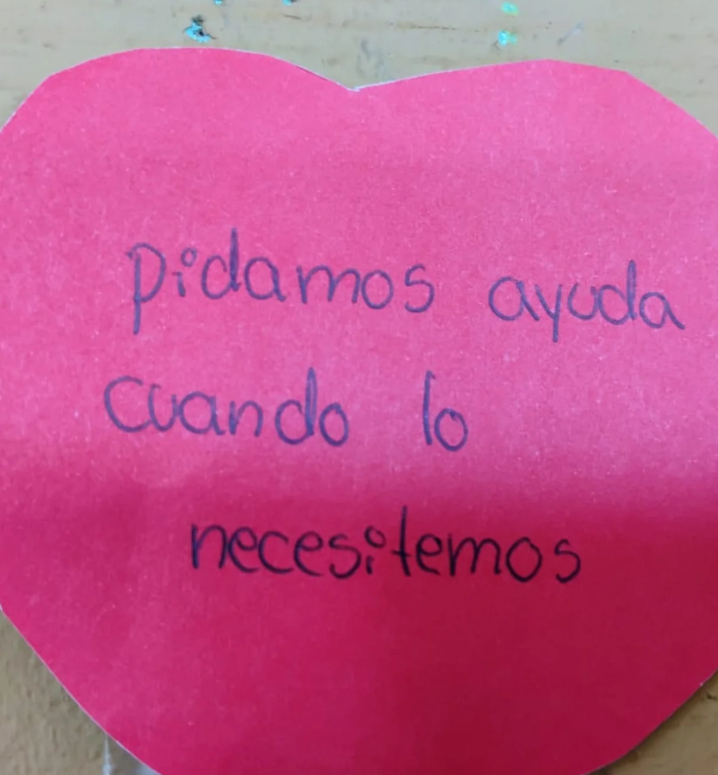 pidamos ayuda
cuando lo
necesitemos